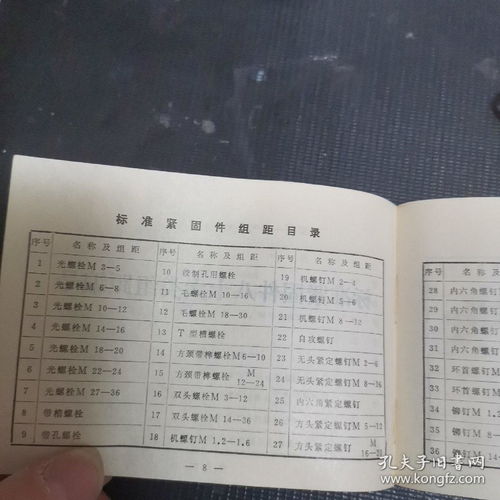 标准紧固件组距目录
序号 名称及组距 序号 名称及组距 序号 名称及组距
1 光螺栓M 3—5 10 铰制孔用螺栓 19 机螺钉M 2—4 28 内六角螺
2 光螺栓M 6—8 11 毛螺栓M 10—16 20 机螺钉M 5—6 29 内六角螺钉
3 光螺栓M 10—12 12 毛螺栓M 18—30 21 机螺钉M 8—12 30 内六角螺钉
4 光螺栓M 14—16 13 T型槽螺栓 22 自攻螺钉 31 内六角螺钉
5 光螺栓M 18—20 14 方颈带榫螺栓M6—10 23 无头紧定螺钉M 2—6 32 环首螺钉M
6 光螺栓M 22—24 15 方颈带榫螺栓 M 12—24 24 无头紧定螺钉M 8—16 33 环首螺钉
7 光螺栓M 27—36 16 双头螺栓M 3—12 25 内六角紧定螺钉 34 铆钉M
8 带槽螺栓 17 双头螺栓M 14—36 26 方头紧定螺钉M 5—12 35 铆钉M
9 带孔螺栓 18 机螺钉M 1.2—1.6 27 方头紧定螺钉 M 16— 36
— 8 —
孔夫子旧书网
www.kongfz.com